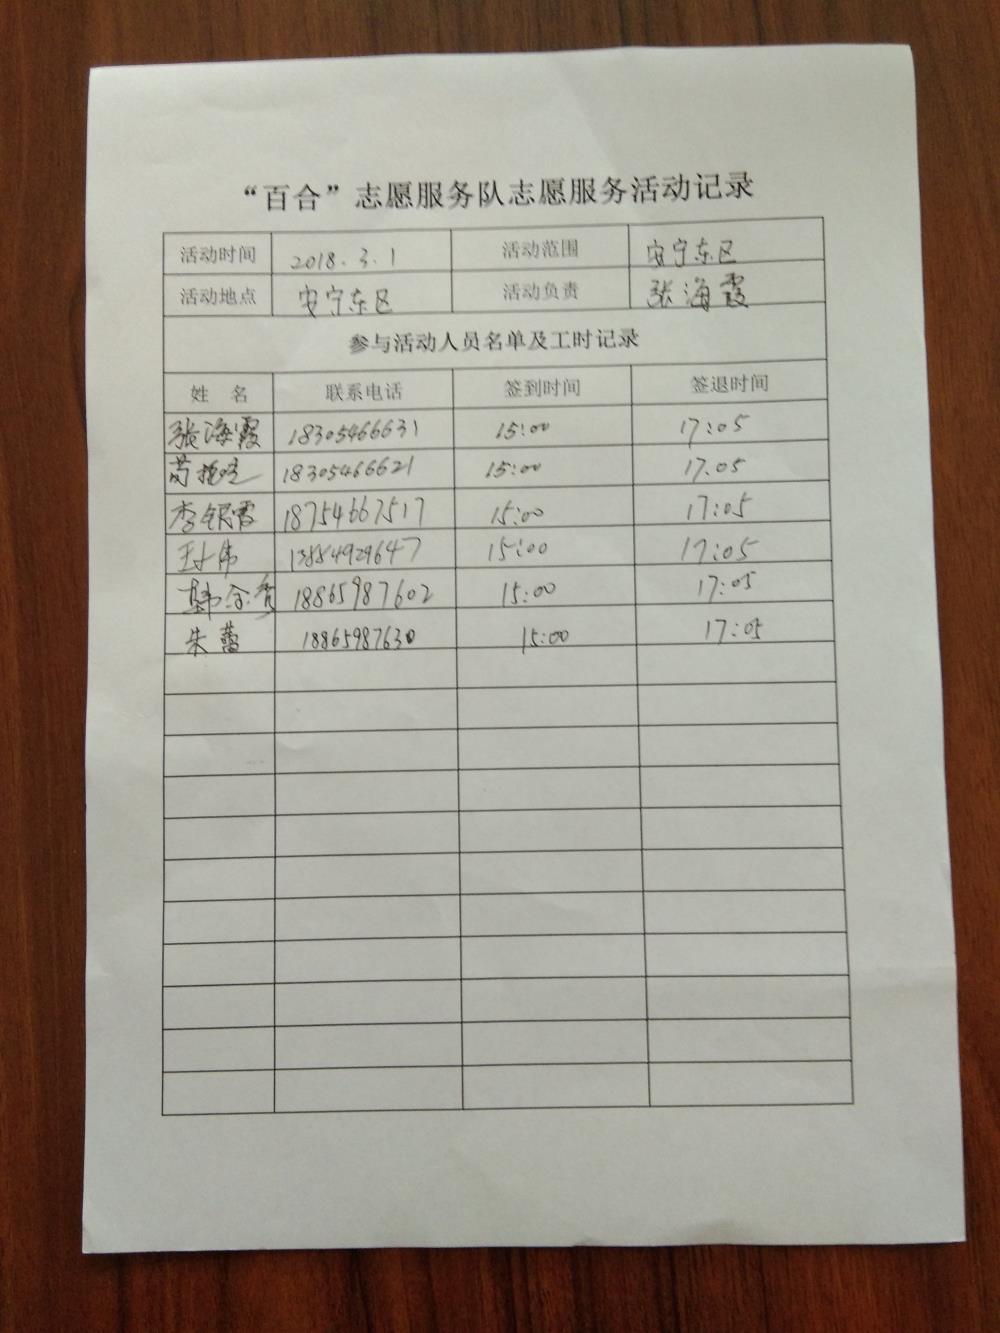 “百合”志愿服务队志愿服务活动记录
活动时间 2018.3.1 活动范围 安宁东区
活动地点 安宁东区 活动负责 张海霞
参与活动人员名单及工时记录
姓 名 联系电话 签到时间 签退时间
张海霞 18305466631 15:00 17:05
18305466621 15:00 17.05
李银霞 18754667517 15:00 17:05
13854929647 15:00 17:05
韩 18865987602 15:00 17:05
朱蕾 18865987630 15:00 17:05